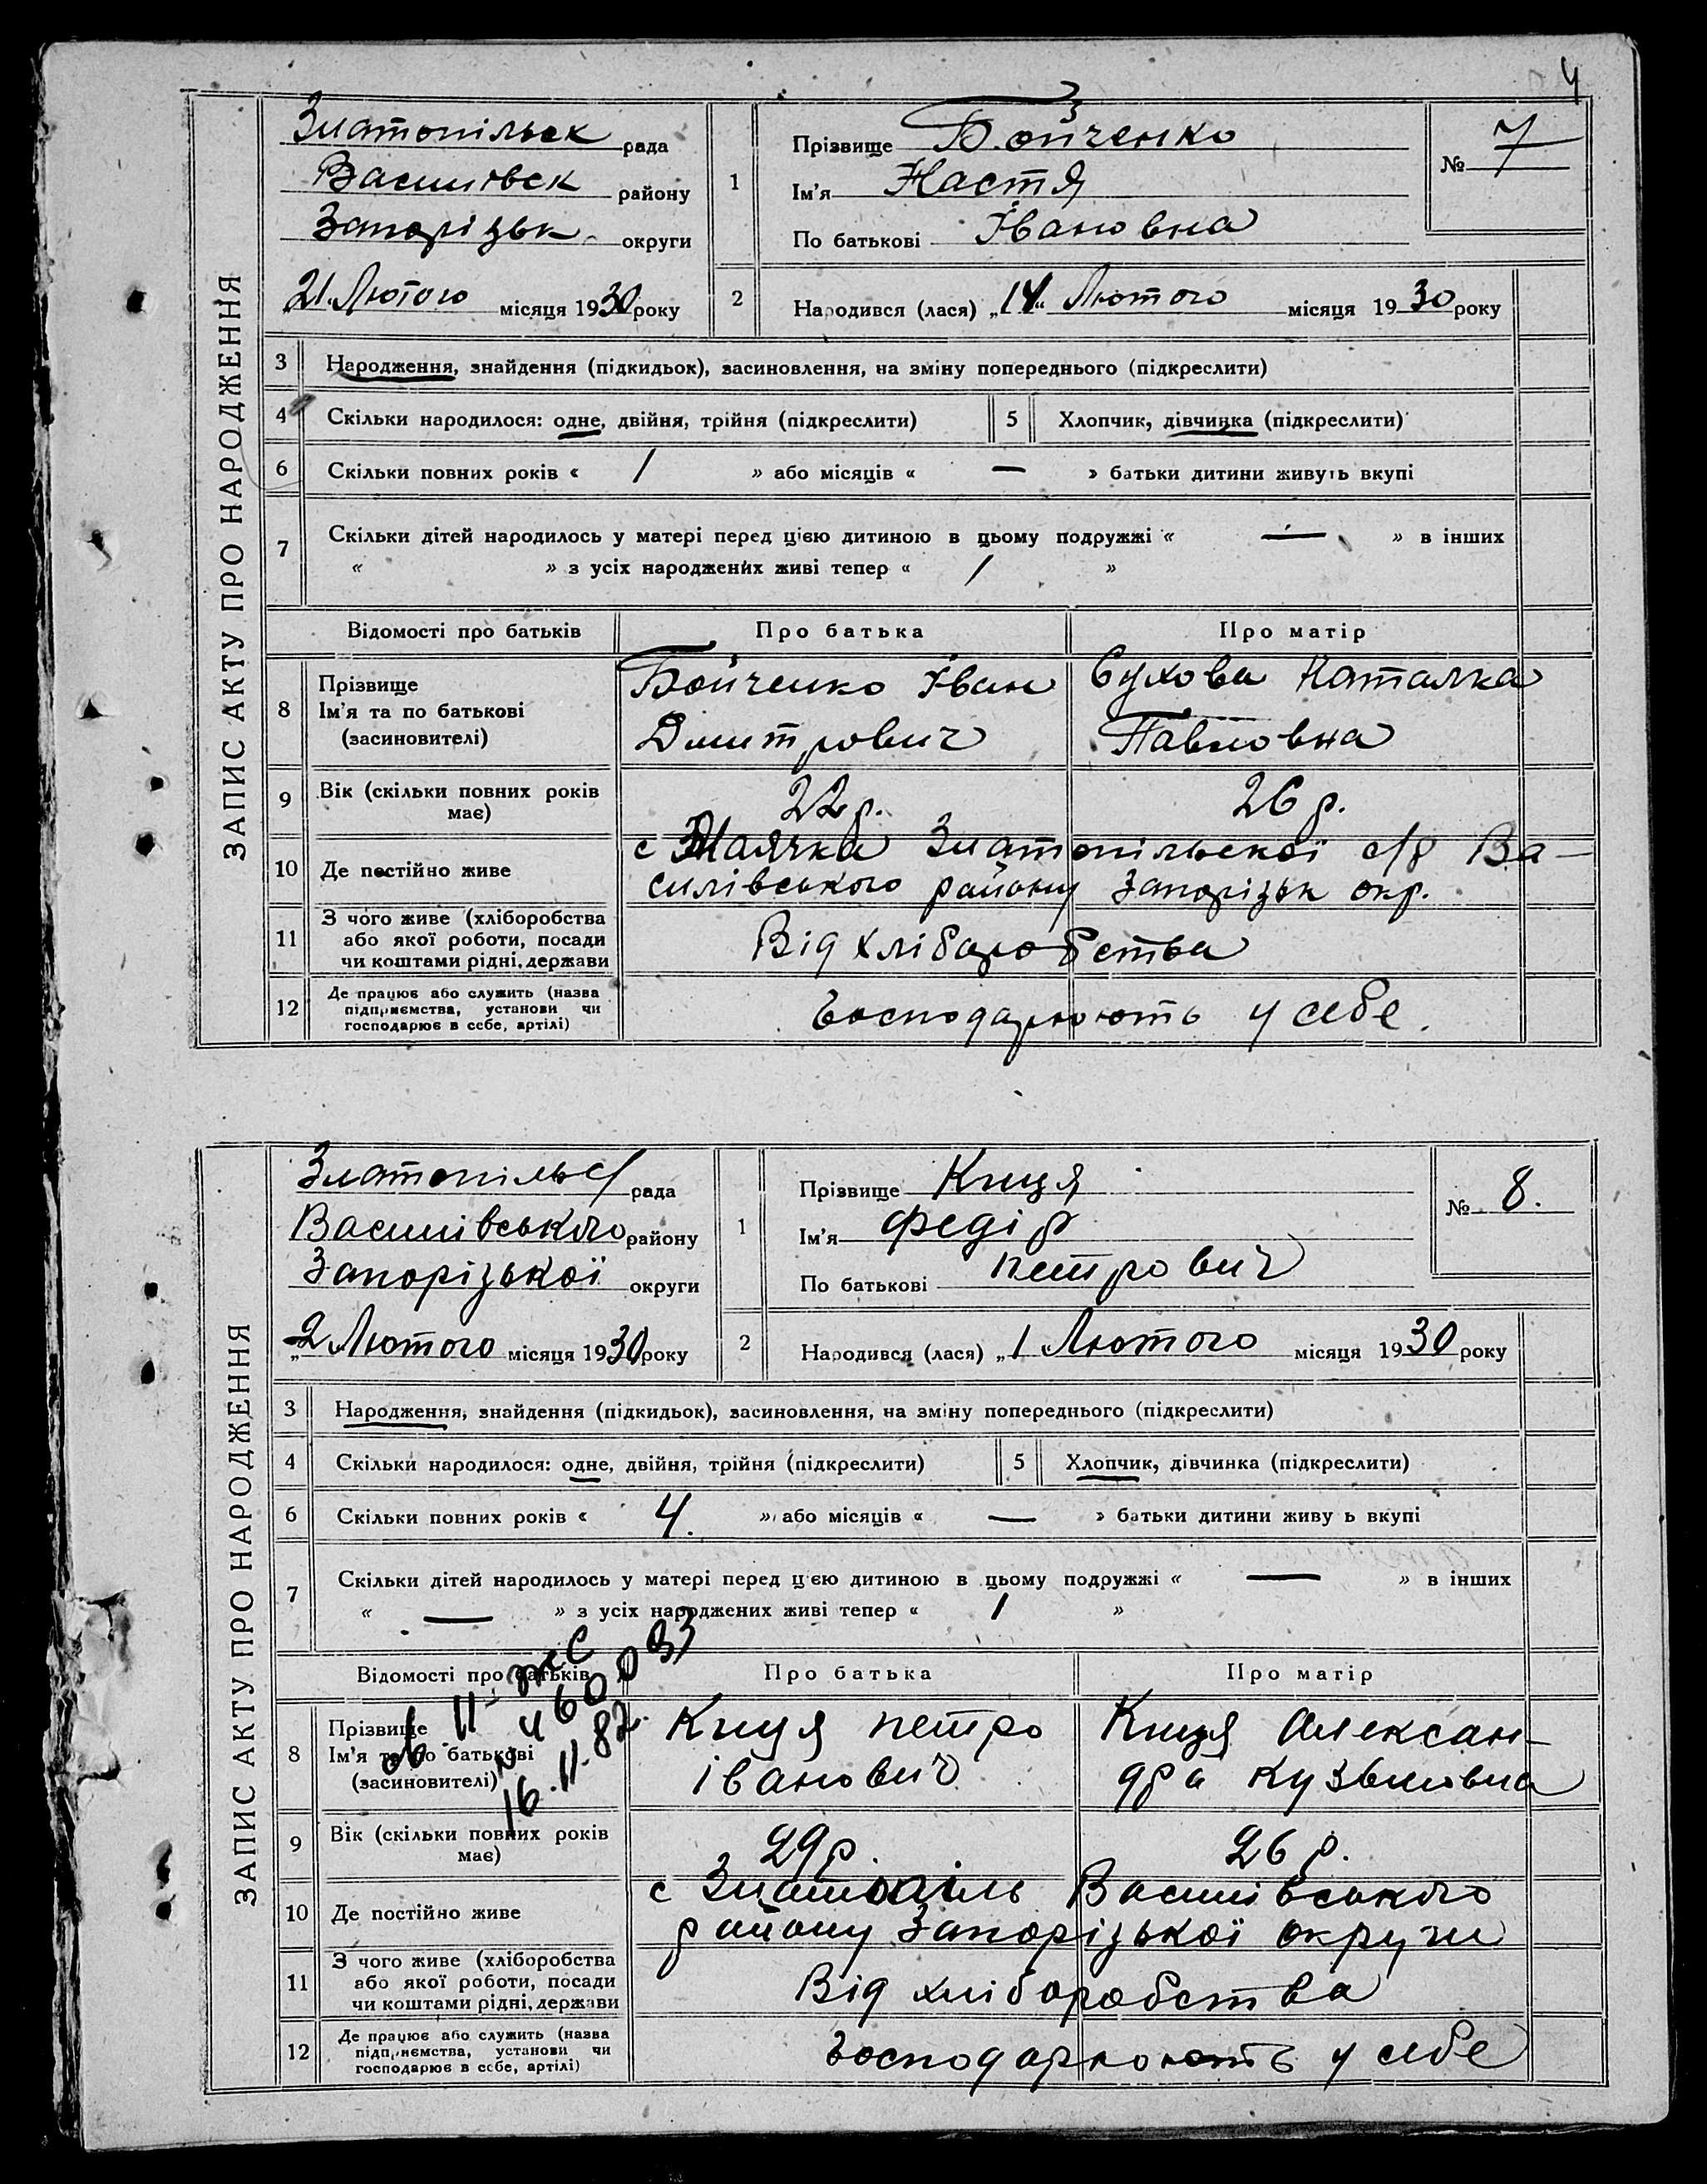 4
ЗАПИС АКТУ ПРО НАРОДЖЕННЯ
Златопільск рада
Василівск району
Запорізьк округи
21 Лютого місяця 1930 року
1
Прізвище Бойченко
Ім'я Настя
По батькові Івановна
№ 7
2
Народився (лася) „14" Лютого місяця 1930 року
3 Народження, знайдення (підкидьок), засиновлення, на зміну попереднього (підкреслити)
4 Скільки народилося: одне, двійня, трійня (підкреслити) 5 Хлопчик, дівчинка (підкреслити)
6 Скільки повних років « 1 » або місяців « — » батьки дитини живуть вкупі
7 Скільки дітей народилось у матері перед цією дитиною в цьому подружжі « — » в інших
« » з усіх народжених живі тепер « 1 »
Відомості про батьків Про батька Про матір
8 Прізвище
Ім'я та по батькові
(засиновителі)
Бойченко Іван
Дмитрович
Сухова Наталка
Павловна
9 Вік (скільки повних років
має)
22 р. 26 р.
10 Де постійно живе
с Маячка Златопільскої с/р Ва-
силівського району Запорізьк окр.
11 З чого живе (хліборобства
або якої роботи, посади
чи коштами рідні, держави
Від хліборобства
12 Де працює або служить (назва
підприємства, установи чи
господарює в себе, артілі)
Господарюють у себе.
ЗАПИС АКТУ ПРО НАРОДЖЕННЯ
Златопільс/ рада
Василівського району
Запорізької округи
„2 Лютого місяця 1930 року
1
Прізвище Книця
Ім'я Федір
По батькові петрович
№ 8.
2
Народився (лася) „1 Лютого місяця 1930 року
3 Народження, знайдення (підкидьок), засиновлення, на зміну попереднього (підкреслити)
4 Скільки народилося: одне, двійня, трійня (підкреслити) 5 Хлопчик, дівчинка (підкреслити)
6 Скільки повних років « 4. » або місяців « — » батьки дитини живу ь вкупі
7 Скільки дітей народилось у матері перед цією дитиною в цьому подружжі « — » в інших
« — » з усіх народжених живі тепер « 1 »
Відомості про батьків Про батька Про матір
II-жС
№ 460033
16.11.87.
8 Прізвище
Ім'я та по батькові
(засиновителі)
Книця петро
іванович
Книця Олексан-
дра кузьмівна
9 Вік (скільки повних років
має)
29 р. 26 р.
10 Де постійно живе
с Златопіль Василівського
району Запорізької округи
11 З чого живе (хліборобства
або якої роботи, посади
чи коштами рідні, держави
Від хліборобства
12 Де працює або служить (назва
підприємства, установи чи
господарює в себе, артілі)
Господарюють у себе